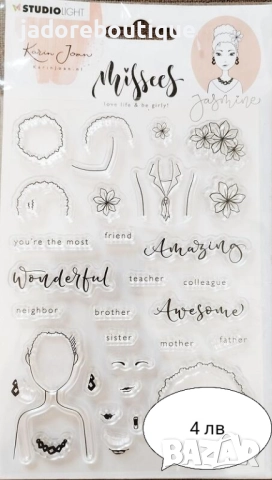 STUDIOLIGHT
jadoreboutique
Karin Joan
Missees
love life & be girly!
Jasmine
you're the most
friend
Amazing
Wonderful
teacher
colleague
neighbor
brother
Awesome
sister
mother
father
4 лв
BAZAR